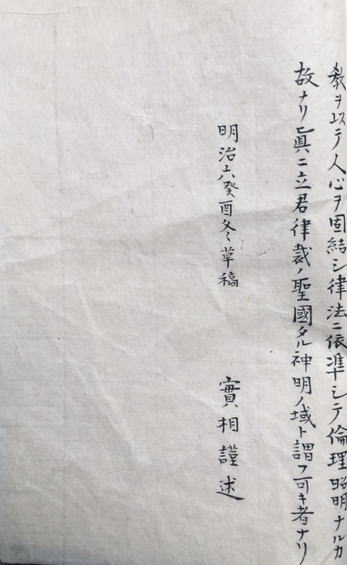 教ヲ以テ人心ヲ固結シ律法ニ依準シテ倫理昭明ナルカ
故ナリ眞ニ立君律裁ノ聖國タル神明ノ域ト謂フ可キ者ナリ
明治六癸酉冬草稿
實相謹述